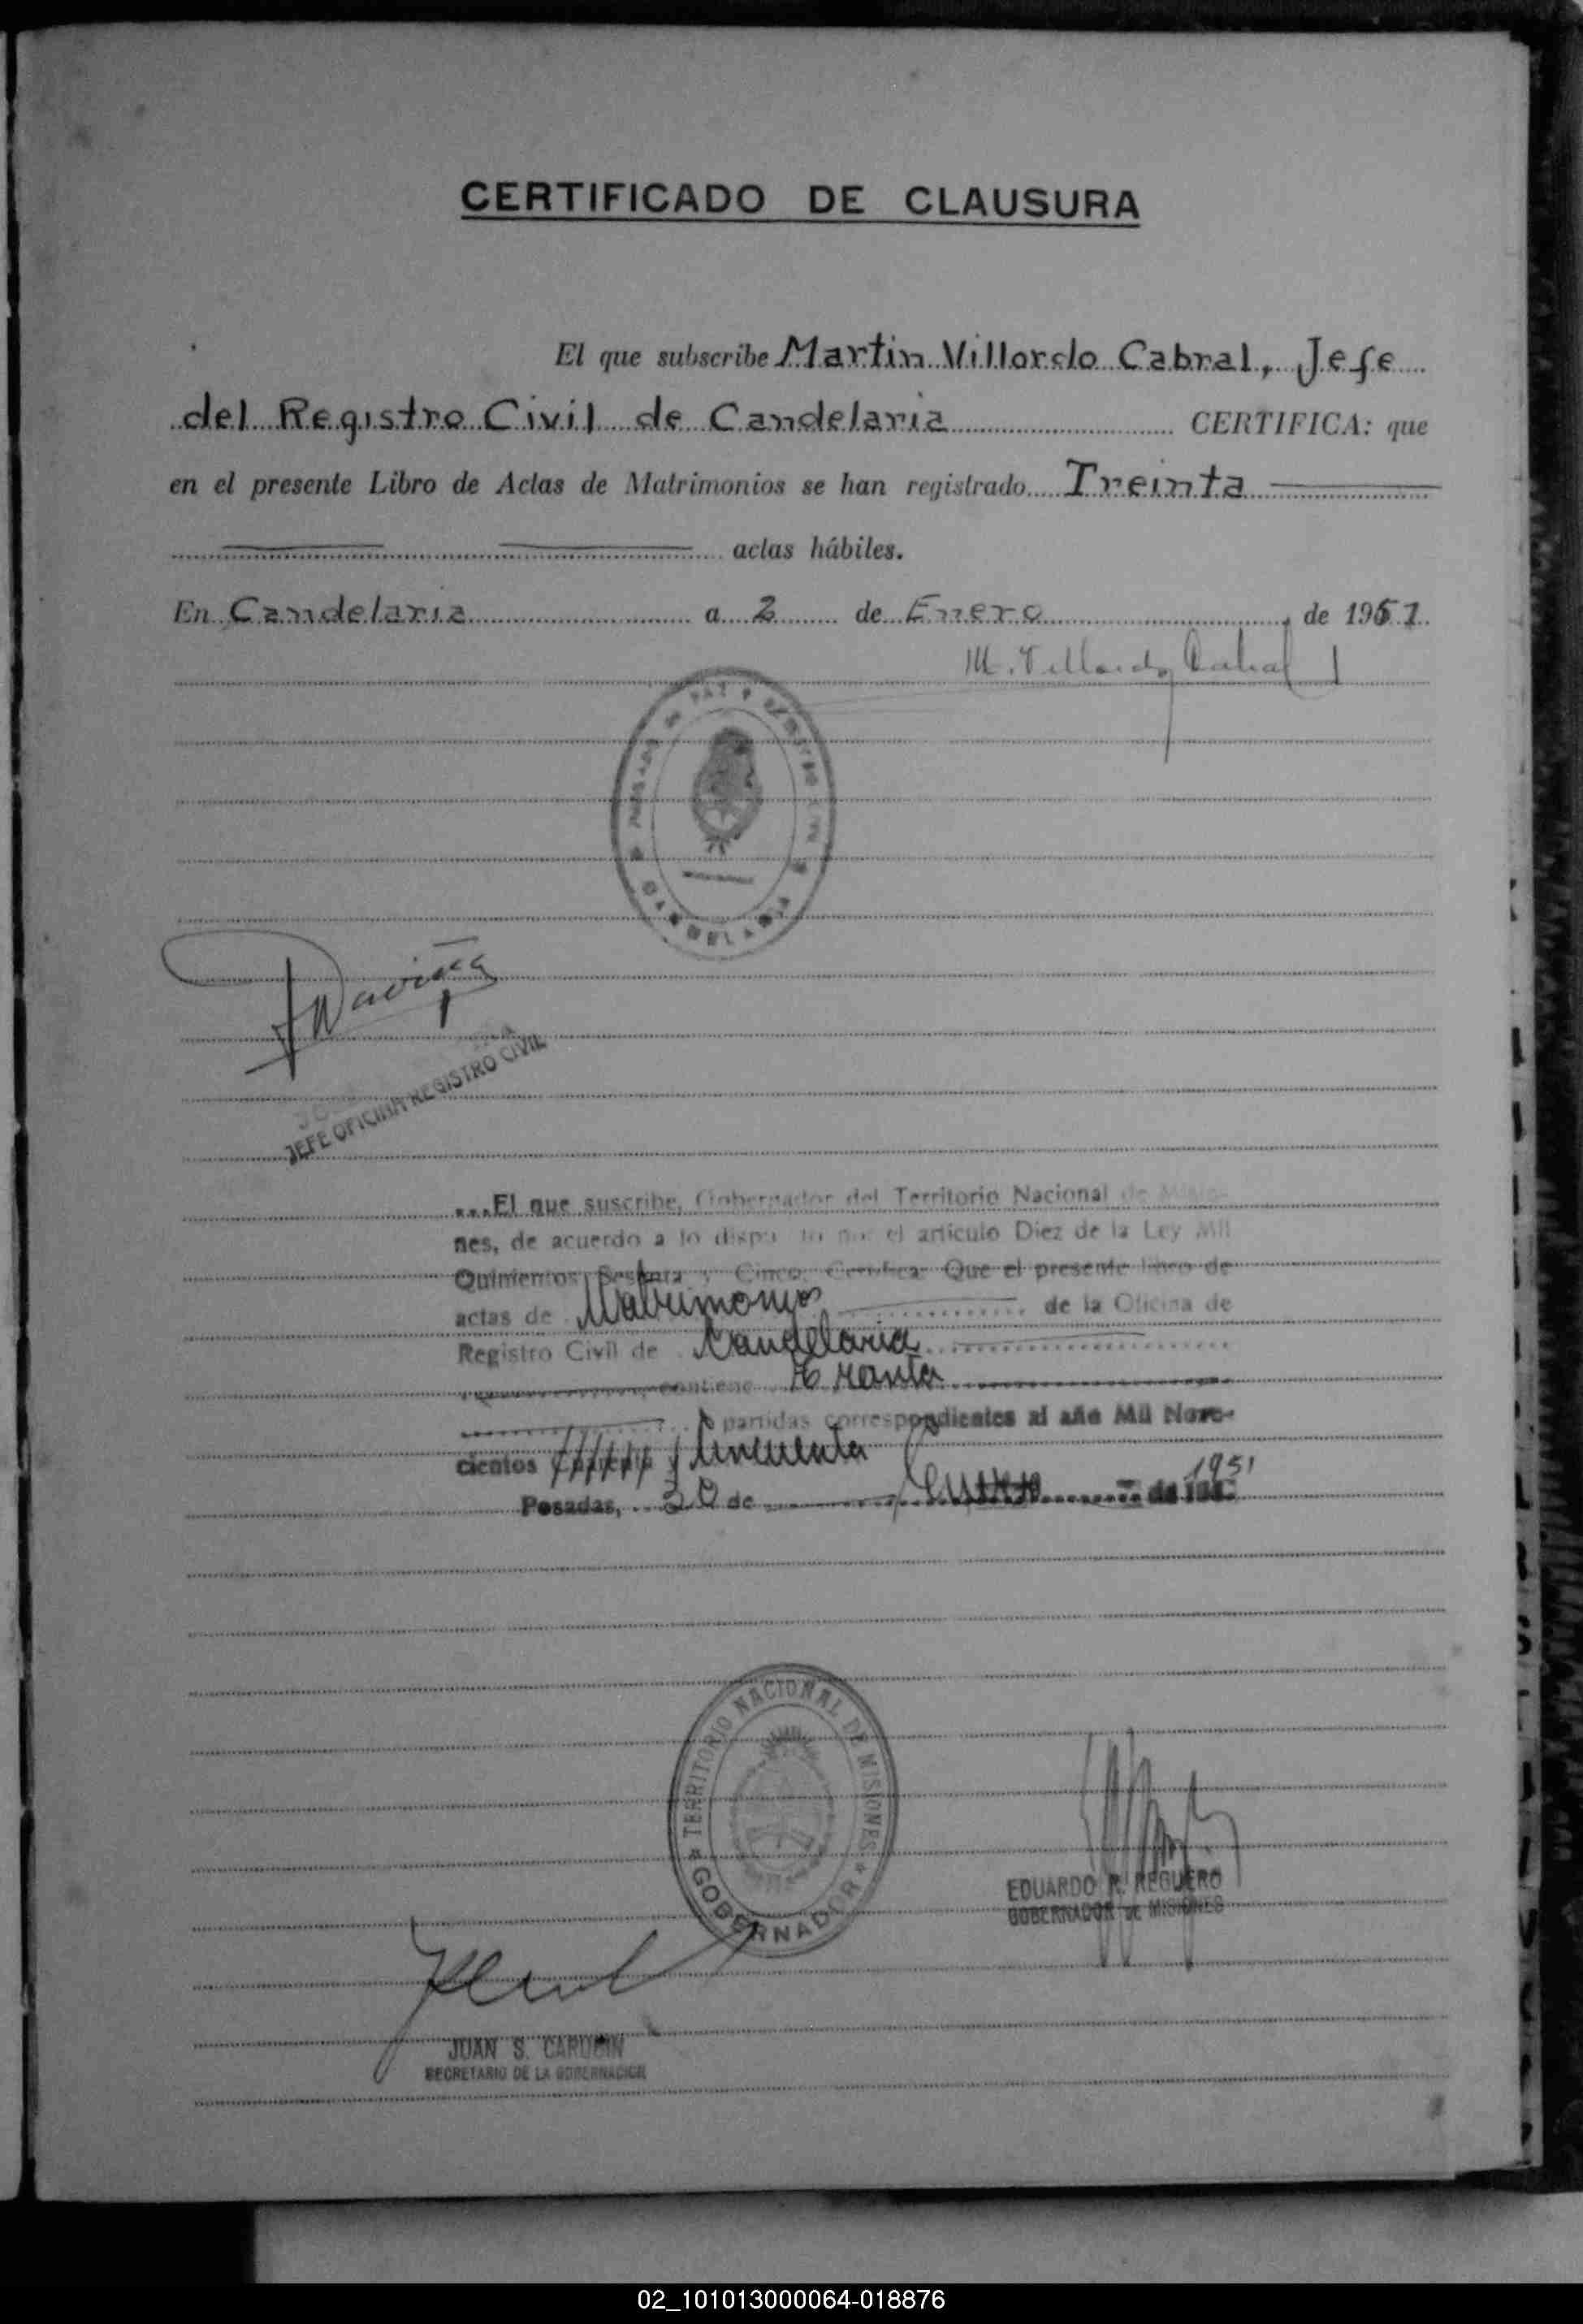 CERTIFICADO DE CLAUSURA
El que subscribe Martin Villordo Cabral, Jefe
del Registro Civil de Candelaria CERTIFICA: que
en el presente Libro de Actas de Matrimonios se han registrado Treinta
actas hábiles.
En Candelaria a 2 de Enero de 1951.
M. Villordo Cabral
JUZGADO DE PAZ Y REGISTRO CIVIL
CANDELARIA
JEFE OFICINA REGISTRO CIVIL
...El que suscribe, Gobernador del Territorio Nacional de Misio-
nes, de acuerdo a lo dispuesto por el artículo Diez de la Ley Mil
Quinientos Sesenta y Cinco, Certifica: Que el presente libro de
actas de Matrimonios de la Oficina de
Registro Civil de Candelaria
contiene treinta
partidas correspondientes al año Mil Nove-
cientos Cincuenta
Posadas, 30 de de 1951
TERRITORIO NACIONAL DE MISIONES
GOBERNADOR
EDUARDO R. REGUERO
GOBERNADOR DE MISIONES
JUAN S.
SECRETARIO DE LA GOBERNACION
02_101013000064-018876